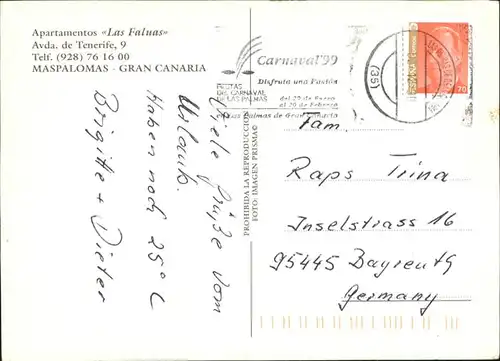 Apartamentos «Las Faluas»
Avda. de Tenerife, 9
Telf. (928) 76 16 00
MASPALOMAS - GRAN CANARIA
Viele Grüße vom
Urlaub.
Haben noch 25°C
Brigitte + Dieter
PROHIBIDA LA REPRODUCCIÓN
FOTO: IMAGEN PRISMA©
FIESTAS
DEL CARNAVAL
DE LAS PALMAS
Carnaval'99
Disfruta una Pasión
del 29 de Enero
al 20 de Febrero
Las Palmas de Gran Canaria
(35)
70
Fam.
Raps Trina
Inselstrass 16
95445 Bayreuth
Germany